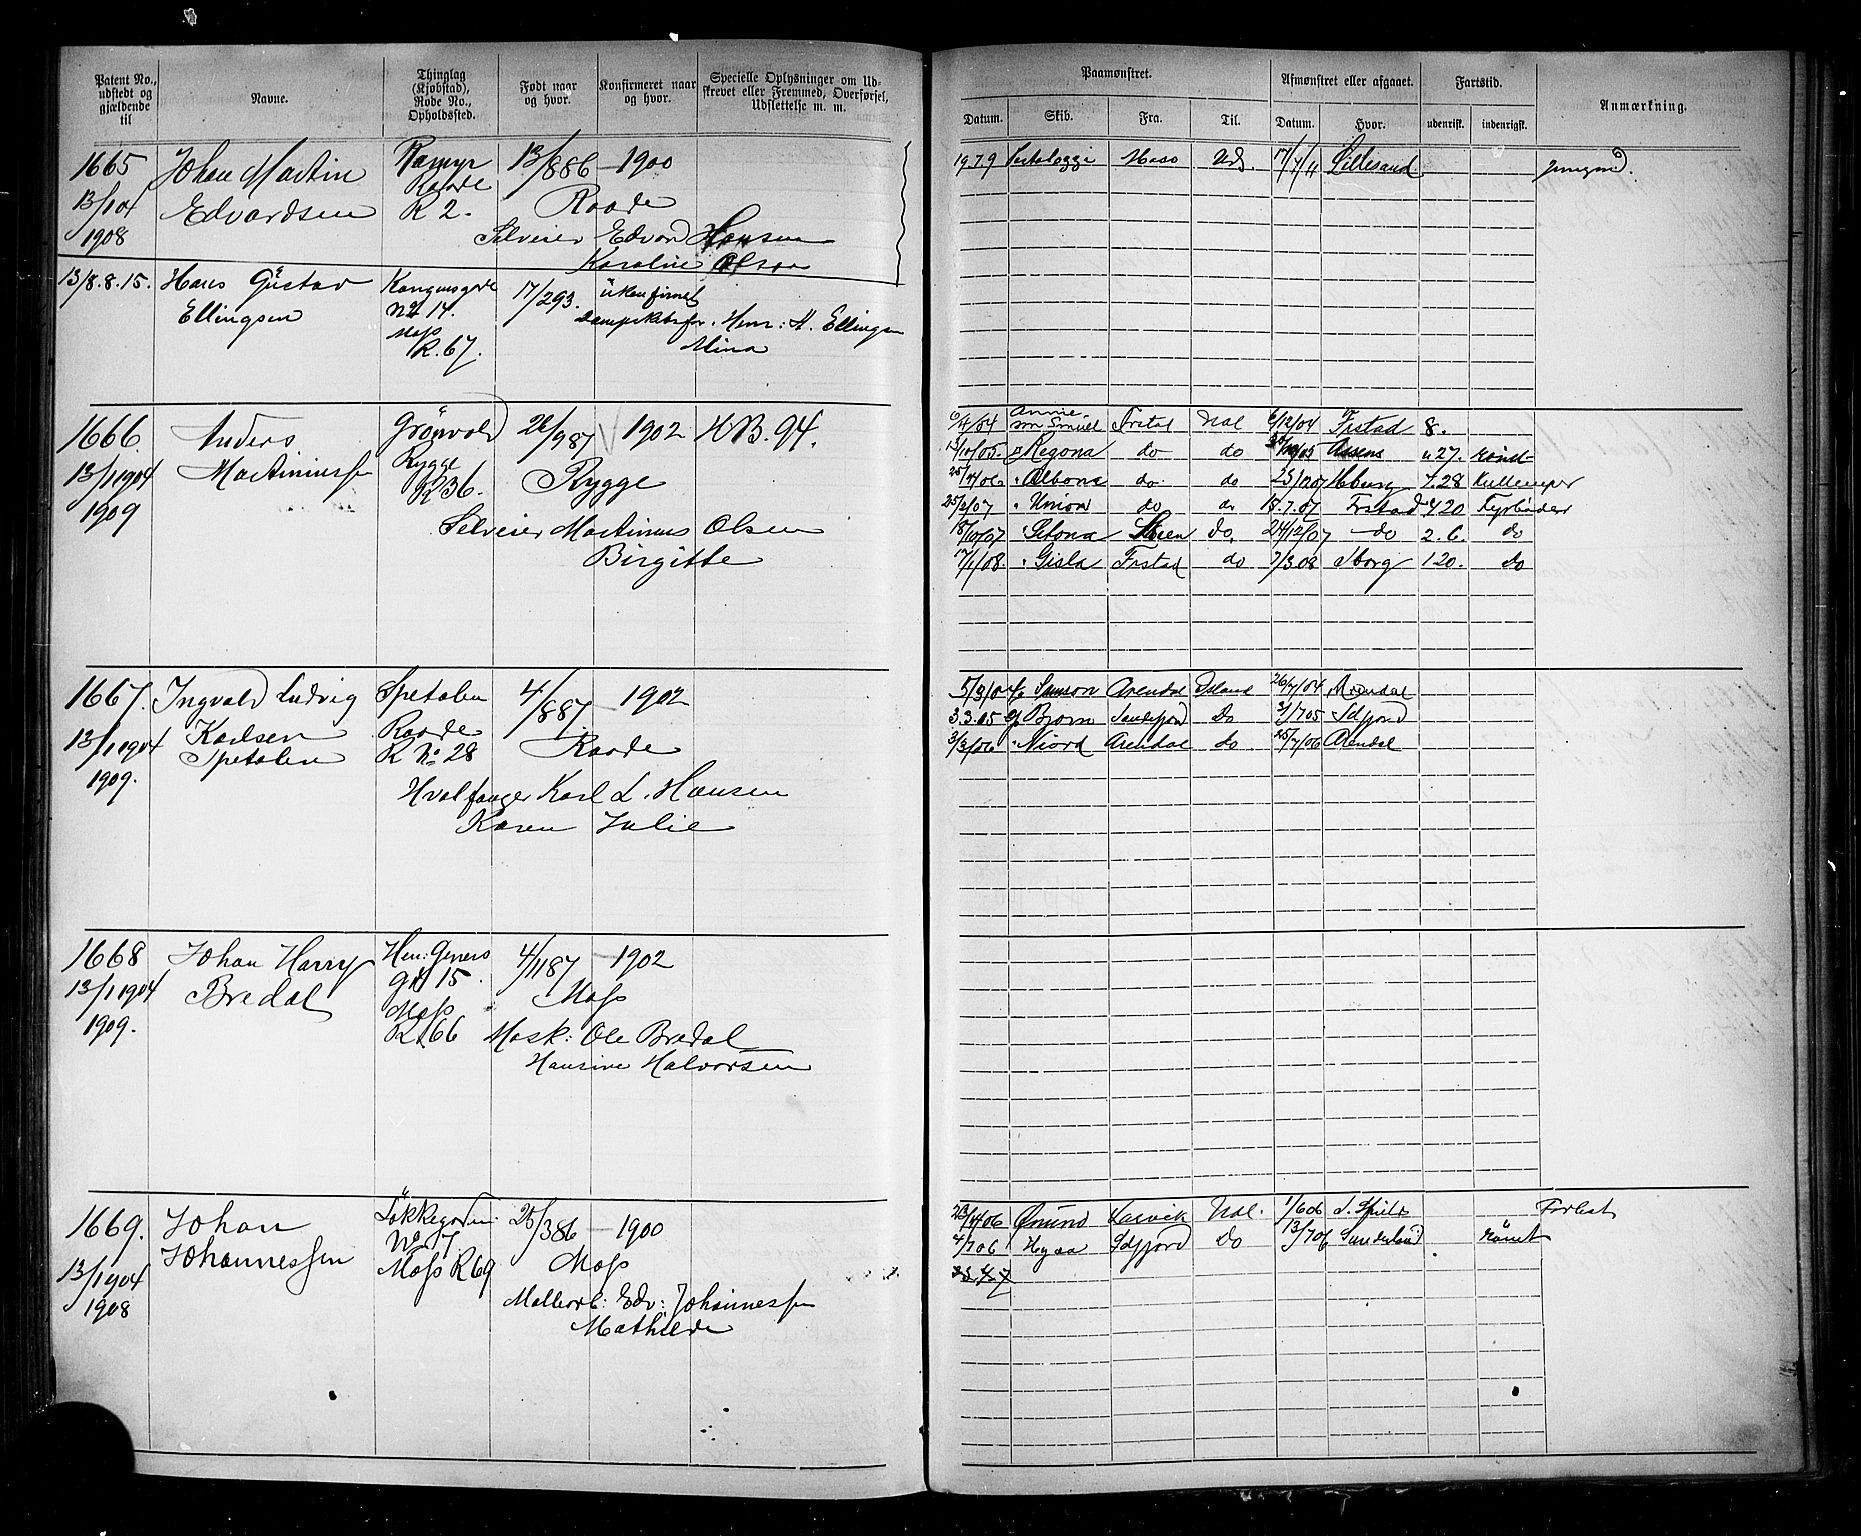 Patent No., udstedt og gjældende til
Navne.
Thinglag (Kjøbstad), Rode No., Opholdssted.
Født naar og hvor.
Konfirmeret naar og hvor.
Specielle Oplysninger om Udskrevet eller Fremmed, Overførsel, Udslettelse m. m.
Paamønstret.
Afmønstret eller afgaaet.
Fartstid.
Anmærkning.
Datum. Skib. Fra. Til. Datum. Hvor. udenrigsk. indenrigsk.
1665 Johan Martin 13/886 - 1900
13/1 04 Edvardsen Raade R 2. Raade
1908 Selveier Edvard Hansen
Karoline Olsen
19.7.9 Moss Udl. Lillesand
13/8.8.15. Hans Gustav 17/293. ukonfirmet
Ellingsen No 14. Moss R. 67. Henr: M. Ellingsen
Mina
1666 Anders Grønvold 1902 H.B. 94.
13/1 1904 Martiniussen Rygge R 36. Rygge
1909
Selveier Martinius Olsen
Birgitte
6/4/04 Annie Frstad Udl 6/12/04 Frstad 8.
13/10/05 Regona do do Assens 27.
25/4/06 Albona do do Hburg 7.28
25/2/07 Union do do 18.7.07 Frstad 4 20 Fyrbøder
18/10/07 do 24/12/07 do 2.6. do
17/1/08. Gisla Frstad do 7/3 08 Sborg 1 20. do
1667. Ingvald Ludvig Spetalen 4/887 - 1902
13/1 1904 Karlsen Raade
1909. Spetalen R No 28 Raade
Hvalfanger Karl L. Hansen
Karen Julie
5/3/04 Samson Arendal Island 26/7/04 Arendal
3.3.05 Bjørn Sandefjord Do Sdfjord
3/3/06 Niord Arendal do 25/7/06 Arendal
1668 Johan Harry Hen: Gerners 4/1187 - 1902
13/1 1904 Bredal gd 15 Moss
1909. Moss R. 66 Mask: Ole Bredal
Hansine Halvorsen
1669. Johan 25/386 - 1900
13/1904 Johannessen No 7 Moss
1908 Moss R 69
Edv: Johannessen
Mathilde
23/4/06 Ønund Larvik Udl. 1/606 Forlist
4/706 Sdfjord Do 13/706 Sunderland rømt
23 4 7